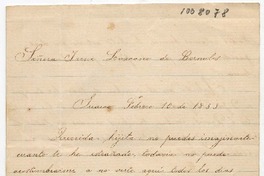 1008078
Señora Irene de Bernales
Febrero 16 de 1883
Querida hijita no puedes imaginarte
cuanto te he estrañado, todavia no puedo
acostumbrarme a no verte aqui todos los dias